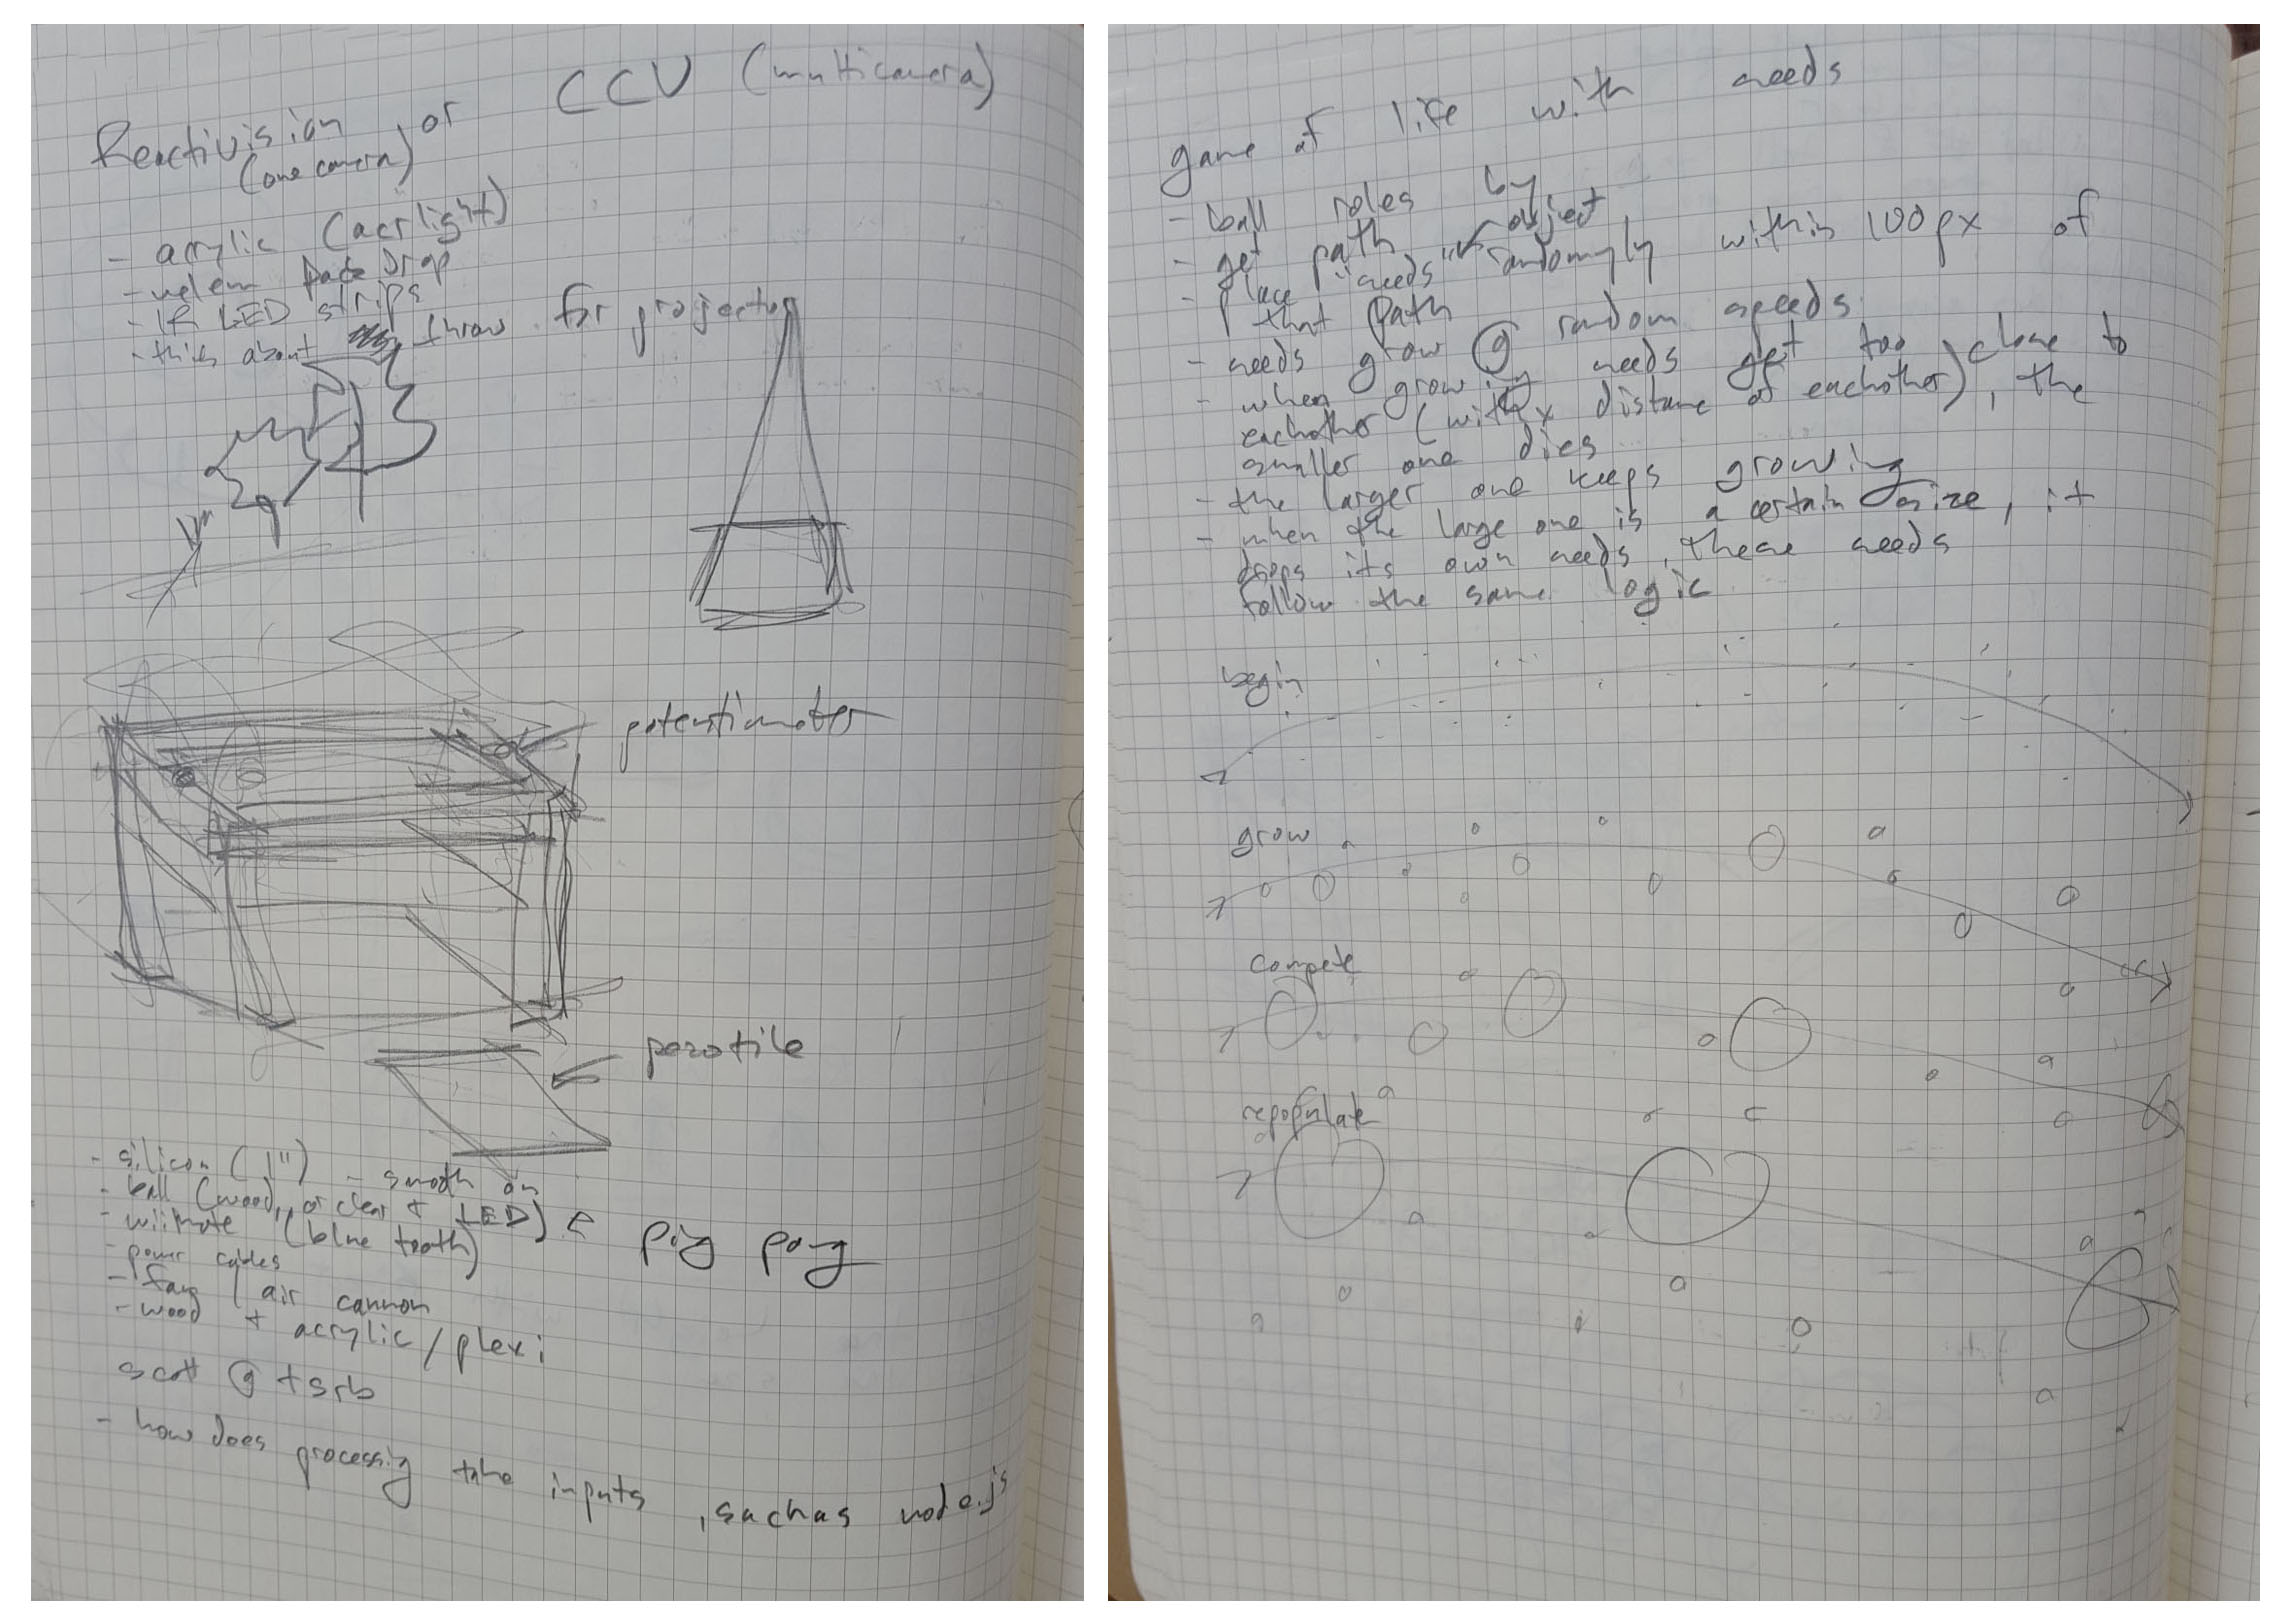 Reactivision or CCV (multicamera)
(one camera)
- acrylic (acrlight)
- velem back Drop
- IR LED strips
- think about throw for projector
potentiometer
perotile
- silicon (1") - smooth on
- ball (wood, or clear + LED) ← pig pong
- wiimote (blue tooth)
- power cables
- fang / air cannon
- wood + acrylic/plexi
scott @ tsrb
- how does processing take inputs, such as node.js
game of life with seeds
- ball roles by
- get path
- place "seeds" ← object randomly within 100px of
that path
- seeds grow @ random speeds
- when growing seeds get too close to
eachother (with x distance of eachother), the
smaller one dies
- the larger one keeps growing
- when the large one is a certain size, it
drops its own seeds, these seeds
follow the same logic
begin
grow
compete
repopulate